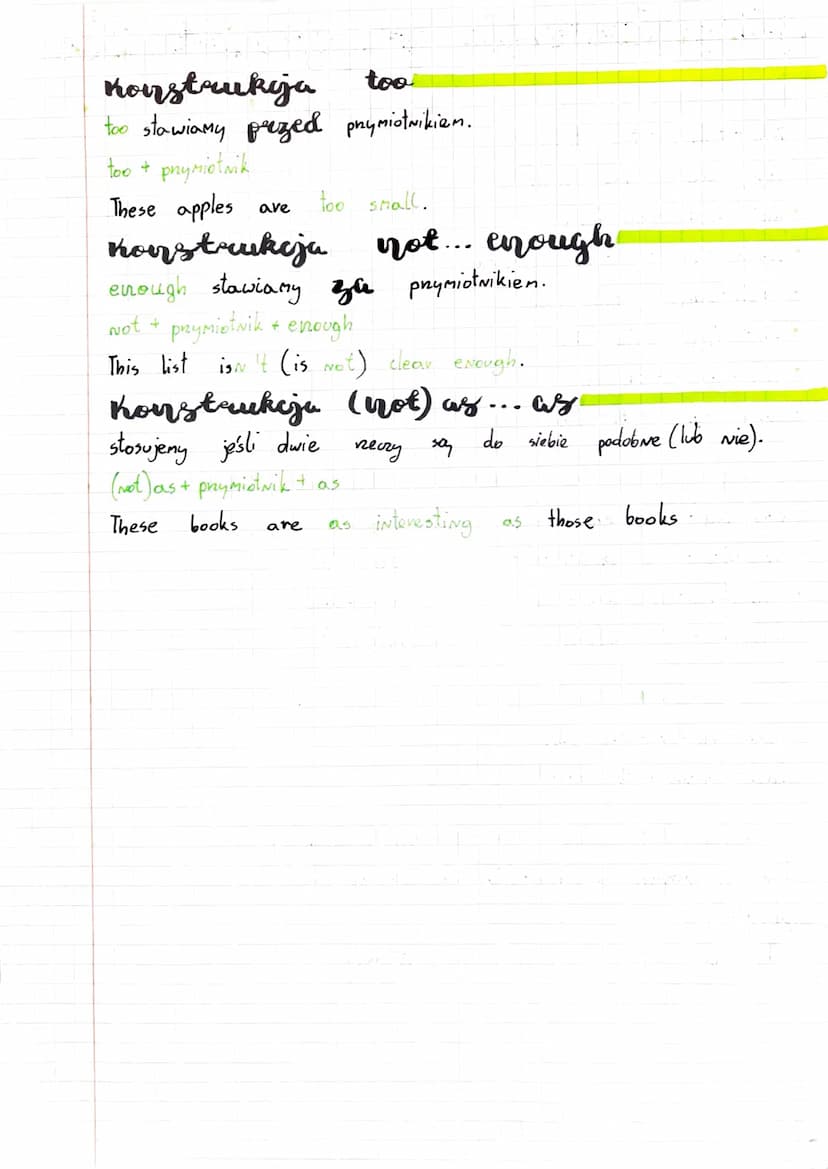 Konstrukcja too
too stawiamy przed przymiotnikiem.
too + przymiotnik
These apples are too small.
Konstrukcja not... enough
enough stawiamy za przymiotnikiem.
not + przymiotnik + enough
This list isn't (is not) clear enough.
Konstrukcja (not) as... as
stosujemy jeśli dwie rzeczy są do siebie podobne (lub nie).
(not) as + przymiotnik + as
These books are as interesting as those books.